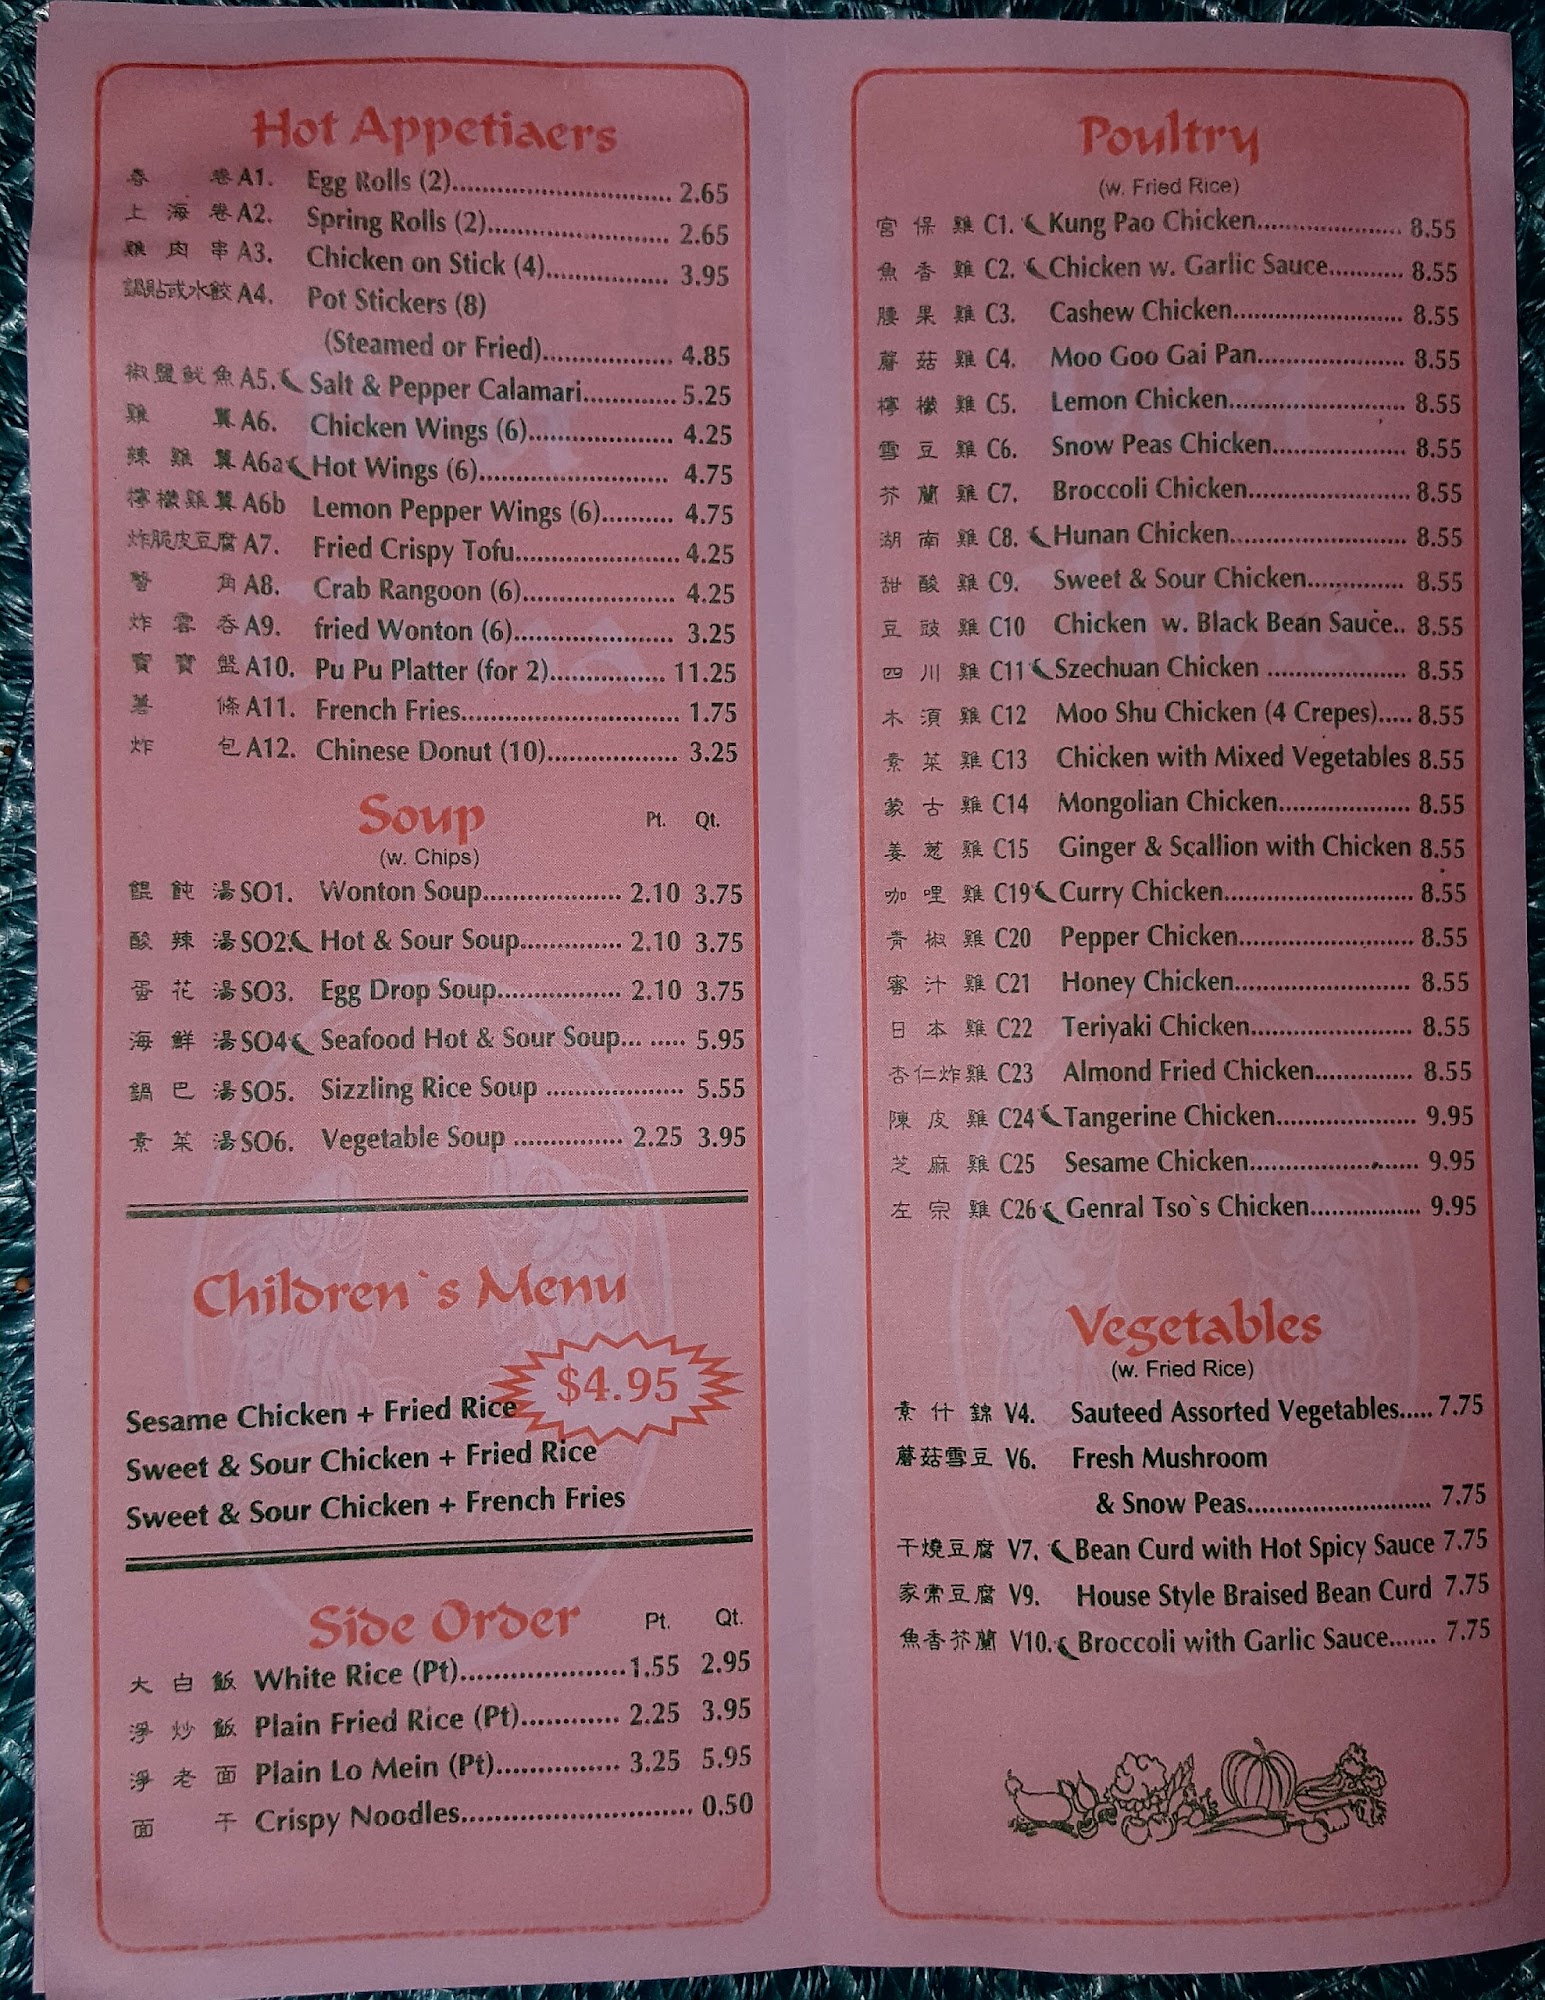 Hot Appetiaers
春 卷 A1. Egg Rolls (2)............................ 2.65
上 海 卷 A2. Spring Rolls (2)....................... 2.65
雞 肉 串 A3. Chicken on Stick (4)............... 3.95
鍋貼或水餃 A4. Pot Stickers (8)
(Steamed or Fried)................ 4.85
椒鹽魷魚 A5. Salt & Pepper Calamari............ 5.25
雞 翼 A6. Chicken Wings (6)................... 4.25
辣 雞 翼 A6a Hot Wings (6)......................... 4.75
檸檬雞翼 A6b Lemon Pepper Wings (6).......... 4.75
炸脆皮豆腐 A7. Fried Crispy Tofu..................... 4.25
蟹 角 A8. Crab Rangoon (6).................... 4.25
炸 雲 吞 A9. fried Wonton (6)..................... 3.25
寶 寶 盤 A10. Pu Pu Platter (for 2)............... 11.25
薯 條 A11. French Fries............................. 1.75
炸 包 A12. Chinese Donut (10)................. 3.25
Soup Pt. Qt.
(w. Chips)
餛 飩 湯 SO1. Wonton Soup.................. 2.10 3.75
酸 辣 湯 SO2. Hot & Sour Soup............. 2.10 3.75
蛋 花 湯 SO3. Egg Drop Soup................ 2.10 3.75
海 鮮 湯 SO4. Seafood Hot & Sour Soup... ..... 5.95
鍋 巴 湯 SO5. Sizzling Rice Soup .................. 5.55
素 菜 湯 SO6. Vegetable Soup .............. 2.25 3.95
Children`s Menu
$4.95
Sesame Chicken + Fried Rice
Sweet & Sour Chicken + Fried Rice
Sweet & Sour Chicken + French Fries
Side Order Pt. Qt.
大 白 飯 White Rice (Pt)......................1.55 2.95
淨 炒 飯 Plain Fried Rice (Pt)............. 2.25 3.95
淨 老 面 Plain Lo Mein (Pt)................ 3.25 5.95
面 干 Crispy Noodles.............................. 0.50
Poultry
(w. Fried Rice)
宮 保 雞 C1. Kung Pao Chicken...................... 8.55
魚 香 雞 C2. Chicken w. Garlic Sauce........... 8.55
腰 果 雞 C3. Cashew Chicken......................... 8.55
蘑 菇 雞 C4. Moo Goo Gai Pan...................... 8.55
檸 檬 雞 C5. Lemon Chicken.......................... 8.55
雪 豆 雞 C6. Snow Peas Chicken.................... 8.55
芥 蘭 雞 C7. Broccoli Chicken........................ 8.55
湖 南 雞 C8. Hunan Chicken.......................... 8.55
甜 酸 雞 C9. Sweet & Sour Chicken.............. 8.55
豆 豉 雞 C10 Chicken w. Black Bean Sauce.. 8.55
四 川 雞 C11 Szechuan Chicken ..................... 8.55
木 須 雞 C12 Moo Shu Chicken (4 Crepes)..... 8.55
素 菜 雞 C13 Chicken with Mixed Vegetables 8.55
蒙 古 雞 C14 Mongolian Chicken.................... 8.55
姜 蔥 雞 C15 Ginger & Scallion with Chicken 8.55
咖 哩 雞 C19 Curry Chicken............................. 8.55
青 椒 雞 C20 Pepper Chicken.......................... 8.55
蜜 汁 雞 C21 Honey Chicken........................... 8.55
日 本 雞 C22 Teriyaki Chicken......................... 8.55
杏仁炸雞 C23 Almond Fried Chicken............... 8.55
陳 皮 雞 C24 Tangerine Chicken..................... 9.95
芝 麻 雞 C25 Sesame Chicken.......................... 9.95
左 宗 雞 C26 Genral Tso`s Chicken................. 9.95
Vegetables
(w. Fried Rice)
素 什 錦 V4. Sauteed Assorted Vegetables..... 7.75
蘑菇雪豆 V6. Fresh Mushroom
& Snow Peas............................ 7.75
干燒豆腐 V7. Bean Curd with Hot Spicy Sauce 7.75
家常豆腐 V9. House Style Braised Bean Curd 7.75
魚香芥蘭 V10. Broccoli with Garlic Sauce....... 7.75